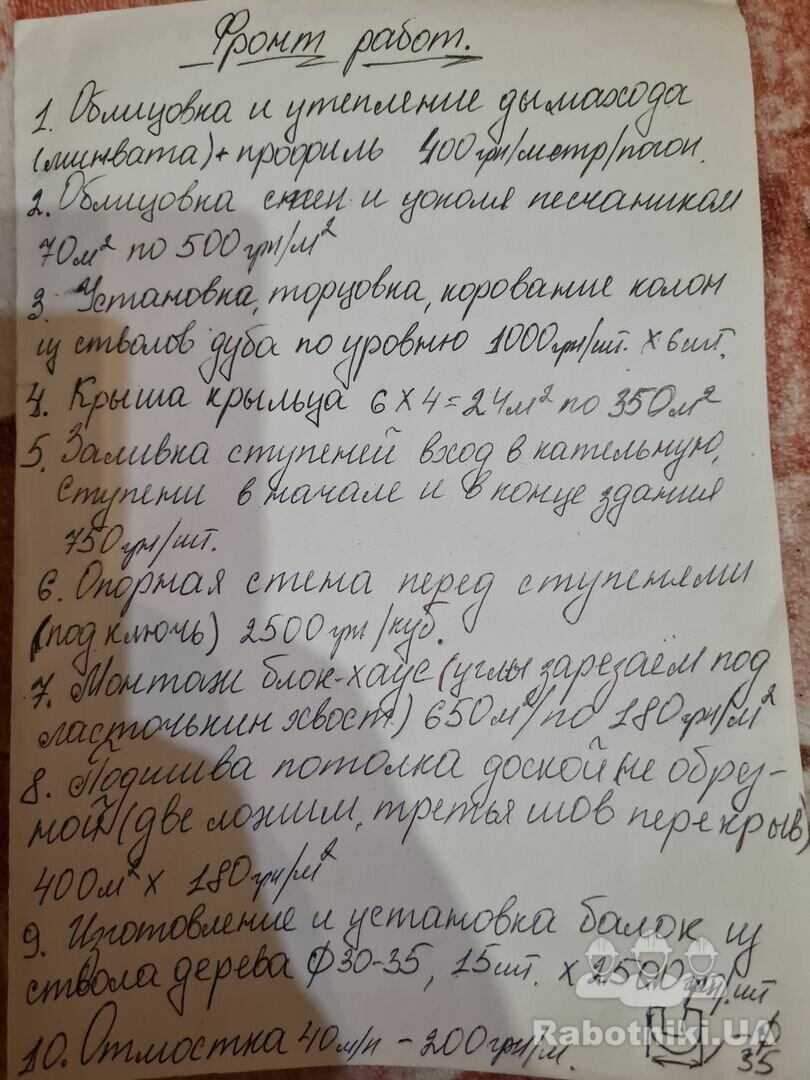 Фронт работ.
1. Облицовка и утепление дымахода
(минвата)+профиль 400грн/метр/погон.
2. Облицовка стен и цоколя песчаником
70м² по 500грн/м²
3. Установка, торцовка, корование колон
из стволов дуба по уровню 1000грн/шт. х 6шт.
4. Крыша крыльца 6 х 4=24м² по 350м²
5. Заливка ступеней вход в кательную,
Ступени в начале и в конце здания
750грн/шт.
6. Опорная стена перед ступенями
(под ключь) 2500грн/куб.
7. Монтаж блок-хаус (углы зарезаем под
ласточькин хвост) 650м²/по 180грн/м²
8. Подшива потолка доской не обрез-
ной (две ложим, третья шов перекрыв)
400м² х 180грн/м²
9. Изготовление и установка балок из
ствола дерева ф30-35, 15шт. х 2500грн/шт
10. Отмостка 40м/п - 200грн/м.
ф
35
Rabotniki.UA